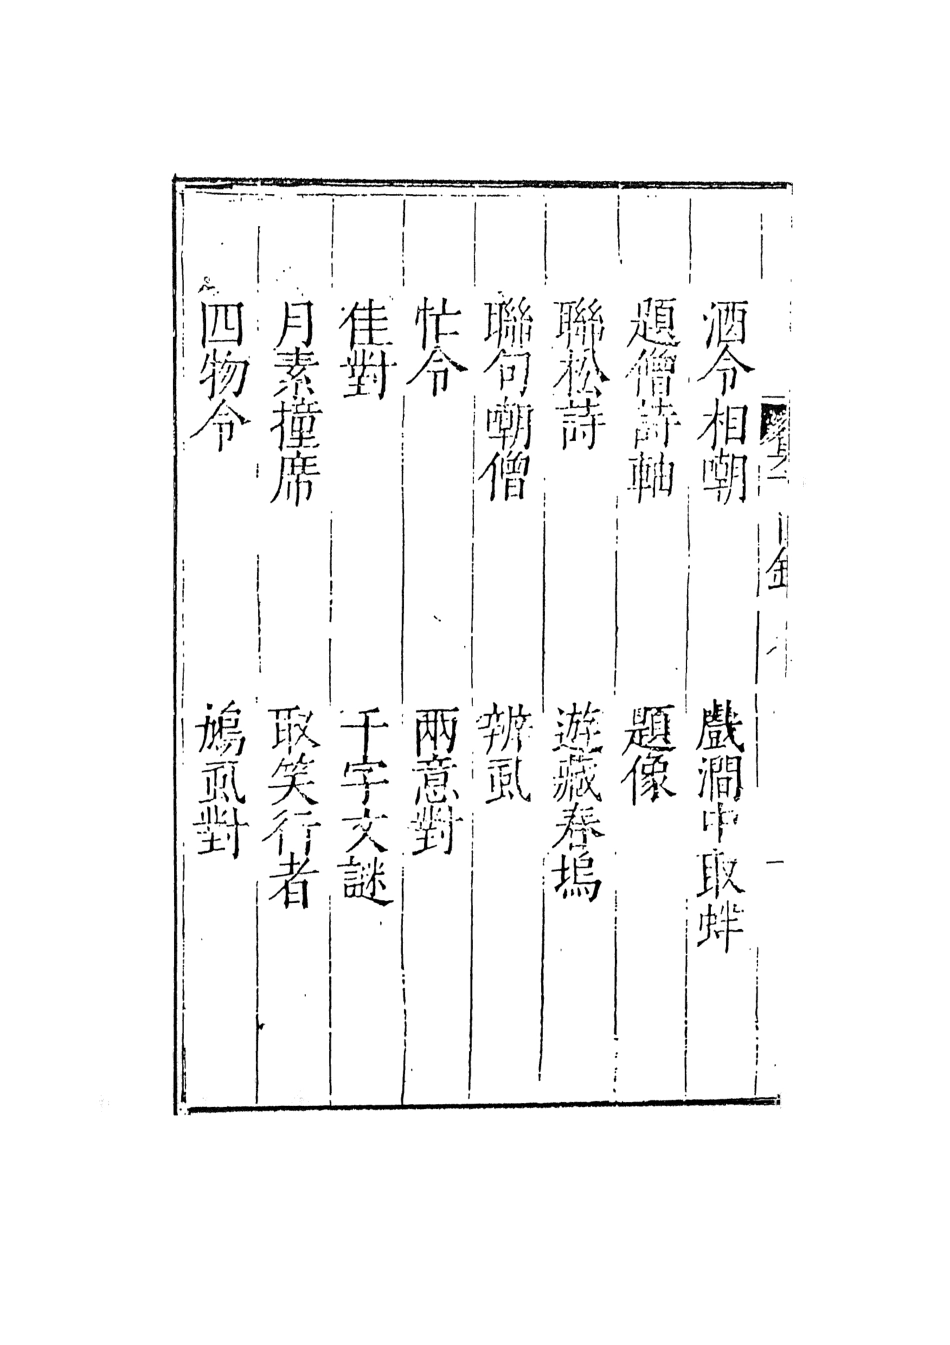 酒令相嘲　戲澗中取蚌
題僧詩軸　題像
聯松詩　遊藏春塢
聯句嘲僧　辨虱
忙令　兩意對
佳對　千字文謎
月素撞席　取笑行者
四物令　鳩虱對